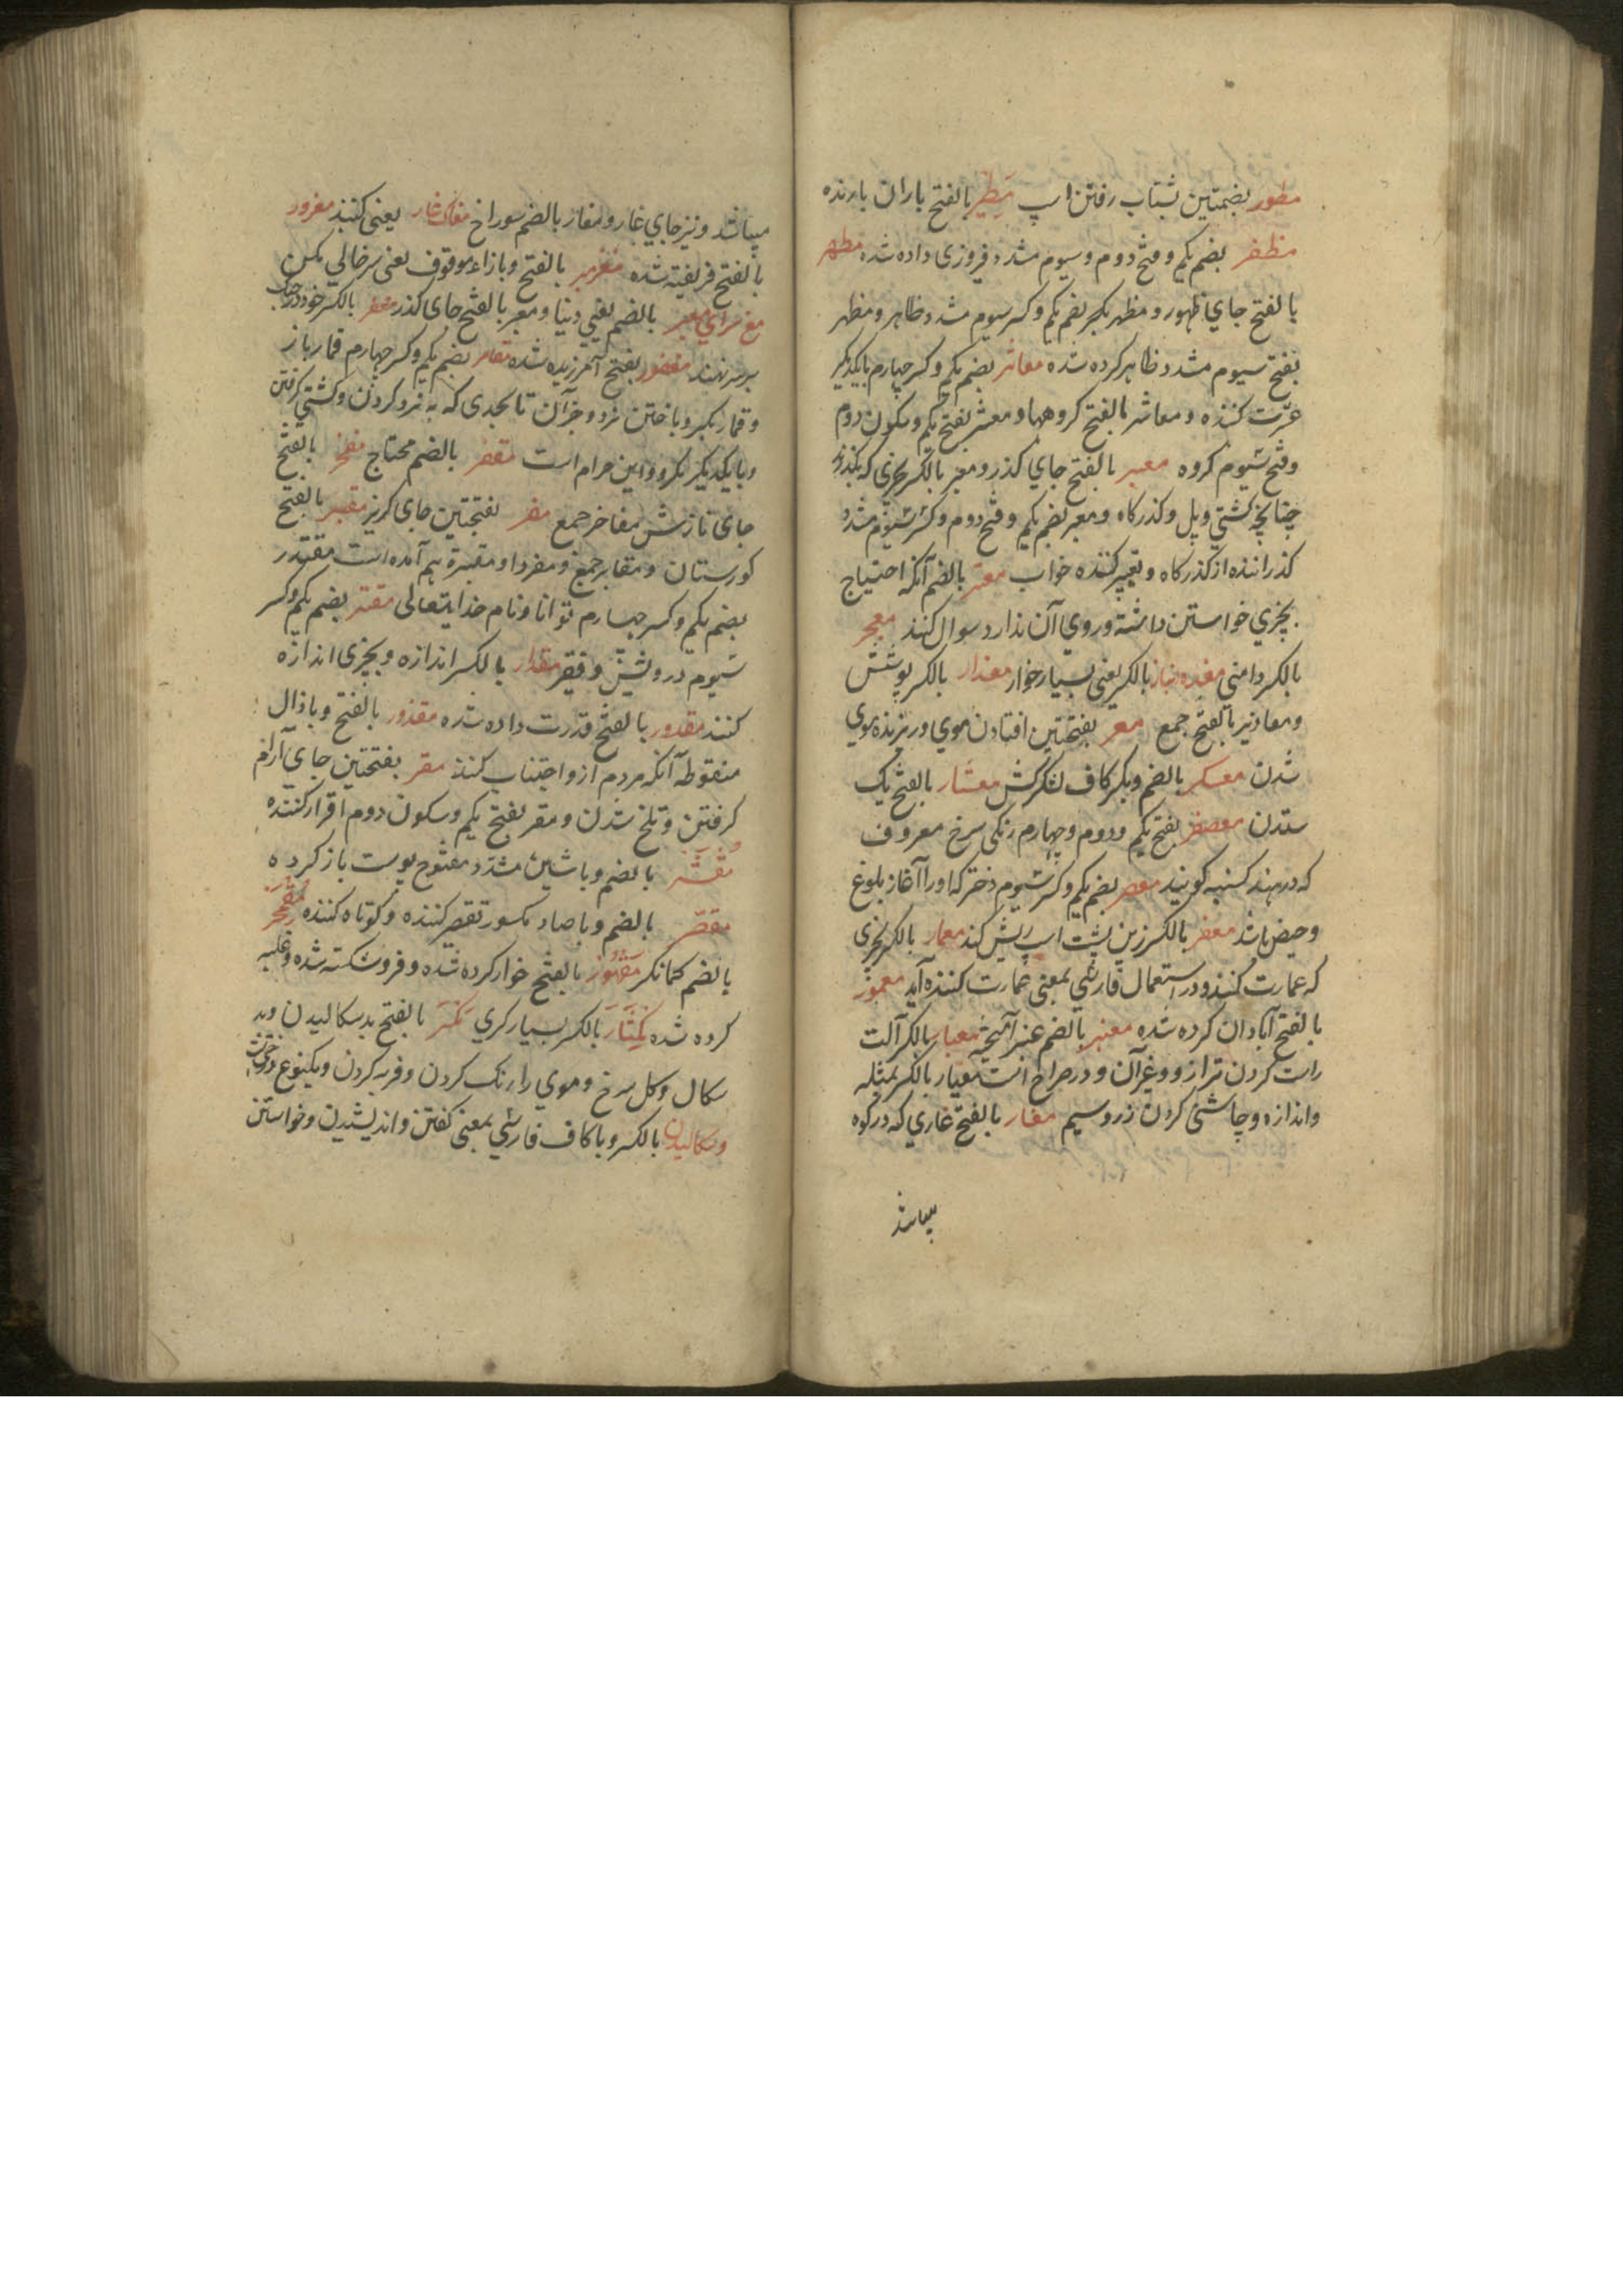 مطور بضمتین بشتاب رفتن اسپ مطیر بالفتح باران بارنده
مظفر بضم یکم وفتح دوم وسیوم مشدد فیروزی داده شده مظهر
بالفتح جای ظهور ومظهر بضم یکم وکسر سیوم مشدد ظاهر ومظهر
بفتح سیوم مشدد ظاهر کرده شده معاشر بضم یکم وکسر چهارم بایکدیکر
عشرت کننده ومعاشر بالفتح کروهها ومعشر بفتح یکم وسکون دوم
وفتح سیوم کروه معبر بالفتح جای کذر ومعبر بالکسر چیزی که بکذرند
چنانچه کشتی وپل وکذرکاه ومعبر بضم یکم وفتح دوم وکسر سیوم مشدد
کذراننده از کذرکاه وتعبیر کننده خواب معتر بالضم آنکه احتیاج
بچیزی خواستن داشته وروی آن ندارد سوال کند معجر
بالکسر دامنی معده انباز بالکسر یعنی بسیار خوار معذار بالکسر پوشش
ومعاذیر بالفتح جمع معر بفتحتین افتادن موی وریزنده موی
شدن معسکر بالضم وبکسر کاف لشکرکش معشار بالفتح یک
ستدن معصفر بفتح یکم ودوم وچهارم رنکی سرخ معروف
که در هند کسنبه کویند معصر بضم یکم وکسر سیوم دختر که او را آغاز بلوغ
وحیض باشد معقر بالکسر زین پشت اسپ ریش کند معمار بالکسر چیزی
که عمارت کنند ودر استعمال فارسی بمعنی عمارت کننده آید معمور
بالفتح آبادان کرده شده معنبر بالضم عنبر آمیخته معیار بالکسر آلت
راست کردن ترازو وغیر آن ودر صراح است معیار بالکسر بمثله
واندازه وچاشنی کردن زر وسیم مغار بالفتح غاری که در کوه
میباشد
میباشد ونیز جای غار ومغار بالضم سوراخ مغاک غار یعنی کنند مغرور
بالفتح فریفته شده مغزمبر بالفتح وبازاء موقوف یعنی سر خالی مکن
مغ سرای معبر بالضم یعنی دنیا ومعبر بالفتح جای کذر مغفر بالکسر خود در جنک
بر سر نهند مغفور بفتح آمرزیده شده مقامر بضم یکم وکسر چهارم قمار باز
وقمار بکسر وباختن نرد وجز آن تا بحدی که به نرد کردن وکشتی کرفتن
وبایکدیکر بکرو واین حرام است مفقر بالضم محتاج مفخر بالفتح
جای نازش مفاخر جمع مفر بفتحتین جای کریز مقبر بالفتح
کورستان ومقابر جمع ومفرد او مقبرة هم آمده است مقتدر
بضم یکم وکسر چهارم توانا ونام خدایتعالی مقتر بضم یکم وکسر
سیوم درویش وفقیر مقدار بالکسر اندازه وبچیزی اندازه
کنند مقدور بالفتح قدرت داده شده مقذور بالفتح وباذال
منقوطه آنکه مردم ازو اجتناب کنند مقر بفتحتین جای آرام
کرفتن وتلخ شدن ومقر بفتح یکم وسکون دوم اقرار کننده
مقشر بالضم وباشین مشدد مفتوح پوست باز کرده
مقصر بالضم وباصاد مکسور تقصیر کننده وکوتاه کننده مقمجر
بالضم کمانکر مقهور بالفتح خوار کرده شده وفرو شکسته شده وغلبه
کرده شده مکثار بالکسر بسیار کوی مکر بالفتح بد سکالیدن وبد
سکال وکل سرخ وموی را رنک کردن وفربه کردن ویکنوع درخت است
وسکالیدن بالکسر وباکاف فارسی بمعنی کفتن واندیشیدن وخواستن